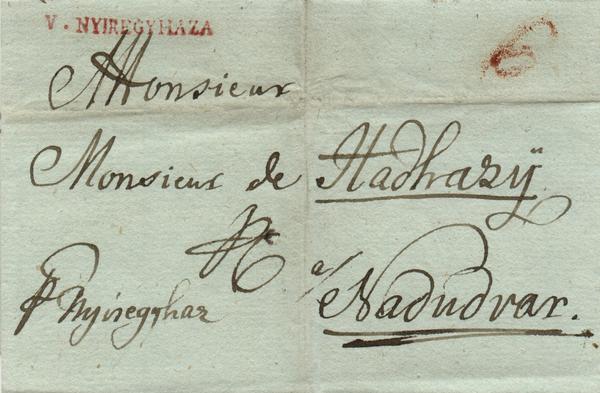 V. NYIREGYHAZA
6
Monsieur
Monsieur de Hadhazÿ
a/ Nadudvar.
p Nyiregyhaz